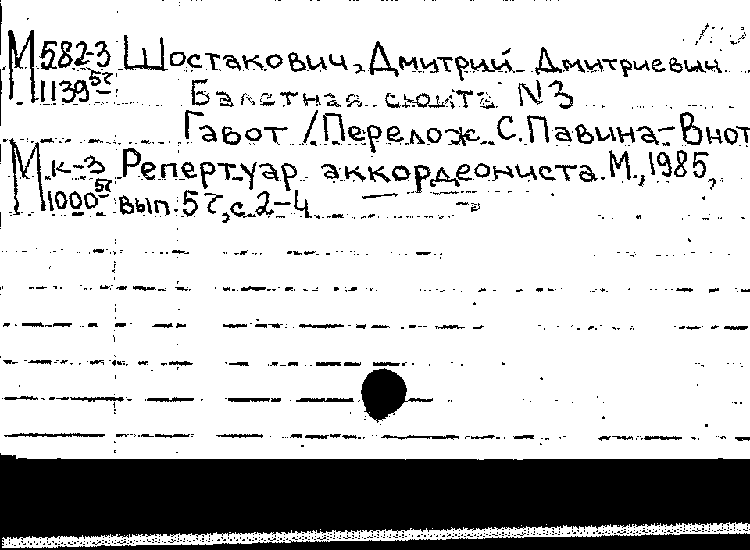 М 582-3 Шостакович, Дмитрий Дмитриевич
1139 Балетная сюита N3
Гавот / Перелож. С. Павина – В нот
М к-3 Репертуар аккордеониста. М., 1985,
1000 вып. 52, с. 2-4